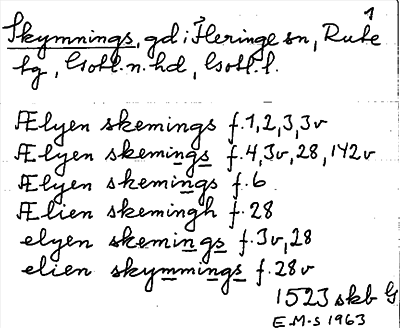 1
Skymnings, gd i Fleringe sn, Rute
tg, Gotl. n. hd, Gotl. l.
Ælyen skemings f. 1, 2, 3, 3v
Ælyen skemings f. 4, 3v, 28, 142v
Ælyen skemings f. 6
Ælien skemingh f. 28
elyen skemings f. 3v, 28
elien skymmings f. 28v
1523 skb G
E.M-s 1963